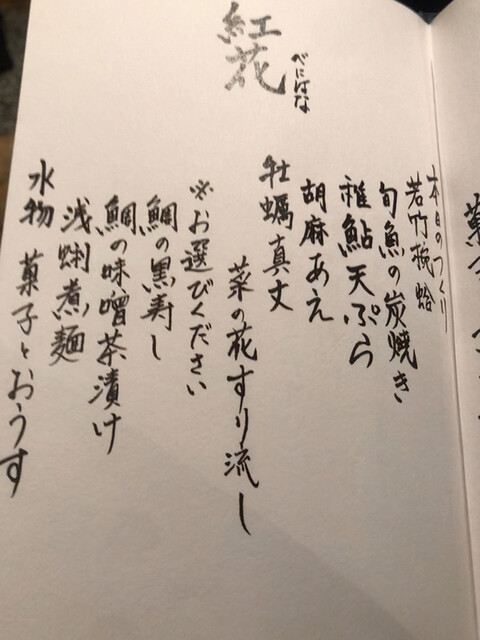 紅花
べにはな
本日のつくり
若竹椀 蛤
旬魚の炭焼き
稚鮎天ぷら
胡麻あえ
牡蠣真丈
菜の花すり流し
※お選びください
鯛の黒寿し
鯛の味噌茶漬け
浅蜊煮麺
水物 菓子とおうす